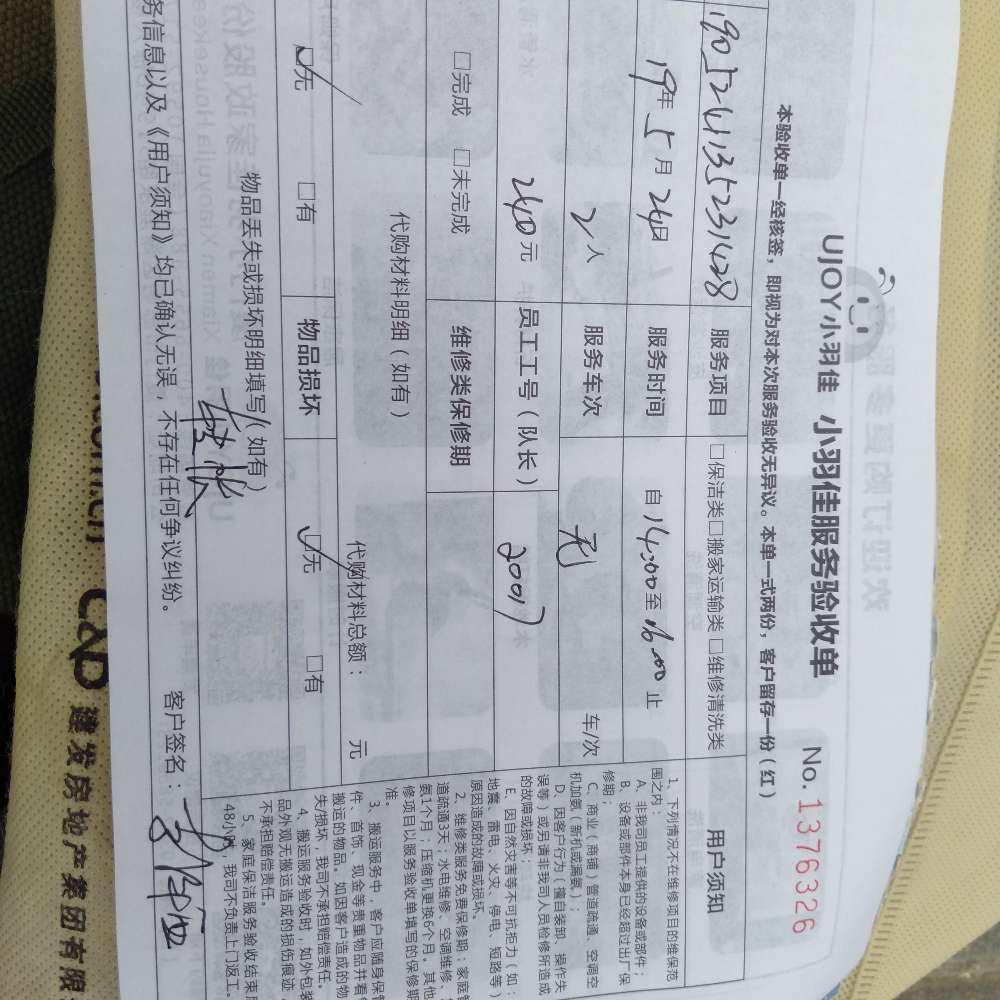 UJOY小羽佳 小羽佳服务验收单
No. 1376326
本验收单一经核签，即视为对本次服务验收无异议。本单一式两份，客户留存一份（红）
1905261135231428 服务项目 □保洁类□搬家运输类 □维修清洗类
19年 5月 26日 服务时间 自 14:00至 16:00 止
2人 服务车次 无 车/次
240元 员工工号（队长） 20017
□完成 □未完成 维修类保修期
代购材料明细（如有） 代购材料总额： 元
☑无 □有 物品损坏 ☑无 □有
物品丢失或损坏明细填写（如有）
务信息以及《用户须知》均已确认无误，不存在任何争议纠纷。 客户签名：
用户须知
1、下列情况不在维修项目的维保范
围之内：
A、非我司员工提供的设备或部件；
B、设备或部件本身已经超过出厂保
修期；
C、商业（商铺）管道疏通、空调空
机加氨（新机或漏氨）；
D、因客户行为（擅自装卸、操作失
误等）或另请非我司人员检修所造成
的故障或损坏；
E、因自然灾害等不可抗拒力（如：
地震、雷电、火灾、停电、短路等）
原因造成的故障或损坏。
2、维修类服务免费保修期：家庭管
道疏通3天；水电维修、空调维修、
氨1个月；压缩机更换6个月。其他
修项目以服务验收单填写的保修期
准。
3、搬运服务中，客户应随身保管
件、首饰、现金等贵重物品并看
搬运的物品。如因客户造成的物
失损坏，我司不承担赔偿责任。
4、搬运服务验收时，如外包装
品外观无搬运造成的损伤痕迹，
不承担赔偿责任。
5、家庭保洁服务验收结束
48小时，我司不负责上门返工。
C&D 建发房地产集团有限